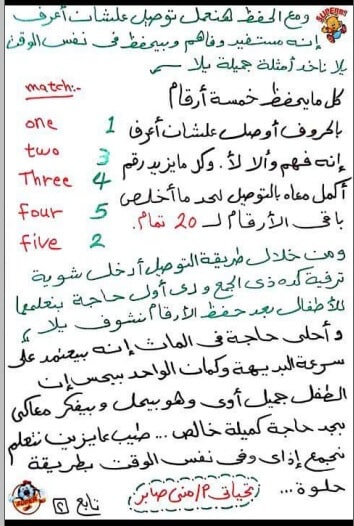 ومع الحفظ هنعمل توصيل علشان أعرف
إنه مستفيد وفاهم وبيحفظ فى نفس الوقت
يلا ناخد أمثلة جميلة يلا
match:-
كل ما يحفظ خمسة أرقام
one 1 بالحروف أوصل علشان أعرف
two 3 إنه فهم وألا لأ. وكل ما يزيد رقم
Three 4 أكمل معاه بالتوصيل لحد ما أخلص
four 5 باقى الأرقام لـ 20 تمام.
five 2
ومن خلال طريقة التوصيل أدخل شوية
ترقية كده ذى الجمع ودى أول حاجة بنعلمها
للأطفال بعد حفظ الأرقام نشوف يلا
وأحلى حاجة فى الماث إنه بيعتمد على
سرعة البديهة وكمان الواحد بيحس إن
الطفل جميل أوى وهو بيحل وبيفكر معاكى
بجد حاجة كميلة خالص... طيب عايزين نتعلم
نجمع إذاى وفى نفس الوقت بطريقة
حلوة...
تحياتى م/منى صابر
تابع ٢